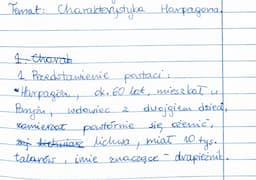 Temat: Charakterystyka Harpagona.
1. Charak
1. Przedstawienie postaci:
• Harpagon, ok. 60 lat, mieszkał w
Paryżu, wdowiec z dwojgiem dzieci,
zamierzał powtórnie się ożenić,
lichwa, miał 10 tys.
talarów, imię znaczące - drapieżnik.